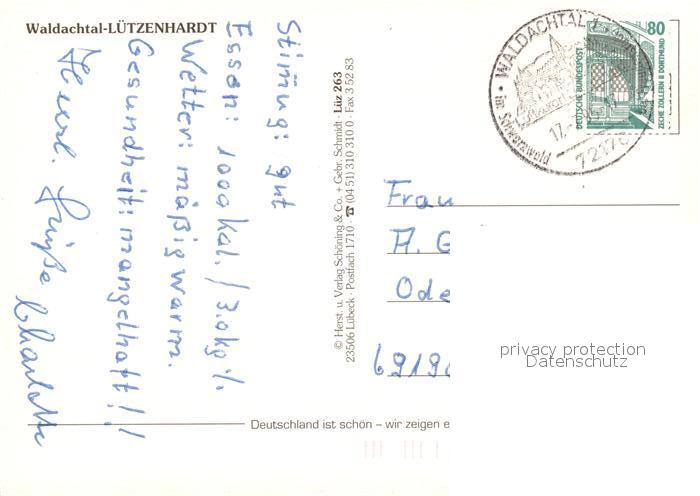 Waldachtal-LÜTZENHARDT
Stimmg: gut
Essen: 1000 kal. / 3.0 kg %
Wetter: mäßig warm.
Gesundheit: mangelhaft!!
Herzl. Grüße Charlotte
© Herst. u. Verlag Schöning & Co. + Gebr. Schmidt · Lüz 263
23506 Lübeck · Postfach 1710 · ☎ (04 51) 310 310 0 · Fax 3 52 83
WALDACHTAL 1
im Schwarzwald
17.
72178
80
DEUTSCHE BUNDESPOST
ZECHE ZOLLERN II DORTMUND
Frau
A. G
Ode
6919
privacy protection
Datenschutz
Deutschland ist schön – wir zeigen e